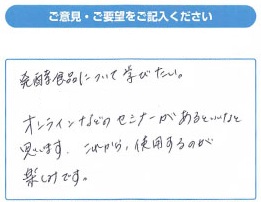 ご意見・ご要望をご記入ください
発酵食品について学びたい。
オンラインなどのセミナーがあるといいなと
思います。これから、使用するのが
楽しみです。